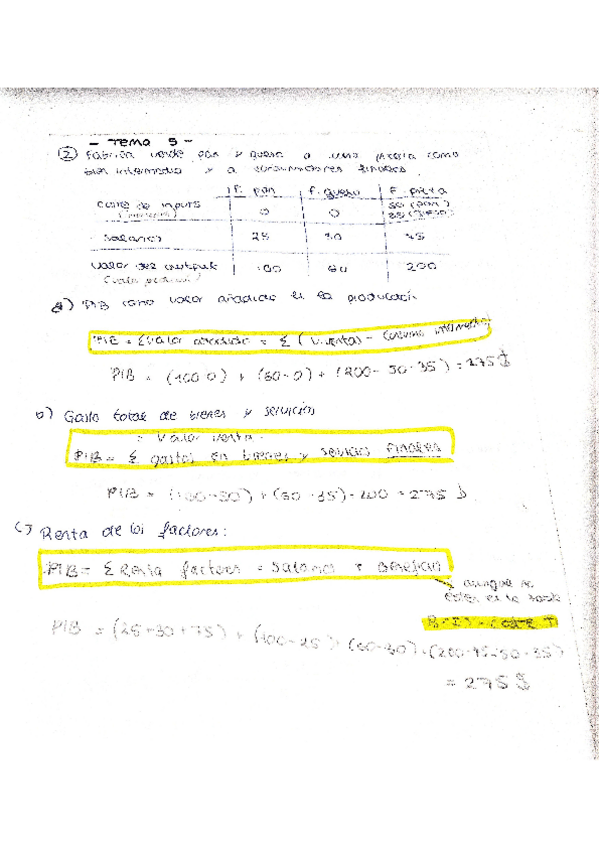 - Tema 5 -
② Fabrica vende pan y queso a una pizzeria como
bien intermedio y a consumidores finales.
F. pan F. queso F. pizza
Coste de inputs 0 0 50 (pan)
35 (queso)
Salarios 25 30 75
Valor del output 100 60 200
a) PIB como valor añadido de la producción
PIB = Σ valor añadido = Σ (Ventas - consumo intermedio)
PIB = (100-0) + (60-0) + (200-50-35) = 275 $
b) Gasto total de bienes y servicios
= Valor venta.
PIB = Σ gastos en bienes y servicios FINALES
PIB = (100-50) + (60-35) + 200 = 275 $
c) Renta de los factores:
PIB = Σ Renta factores = Salarios + Beneficio
aunque no
PIB = (25+30+75) + (100-25) + (60-30) + (200-75-50-35)
= 275 $